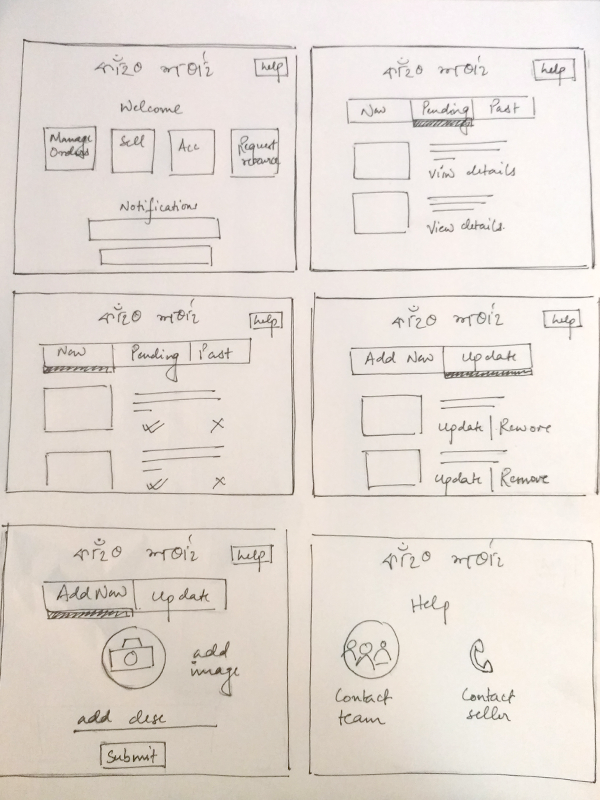 Help
Welcome
Manage Orders Sell Acc Request resource
Notifications
Help
New Pending Past
View details
View details
Help
New Pending Past
Help
Add New Update
Update | Remove
Update | Remove
Help
Add New Update
add image
add desc
Submit
Help
Contact team
Contact seller